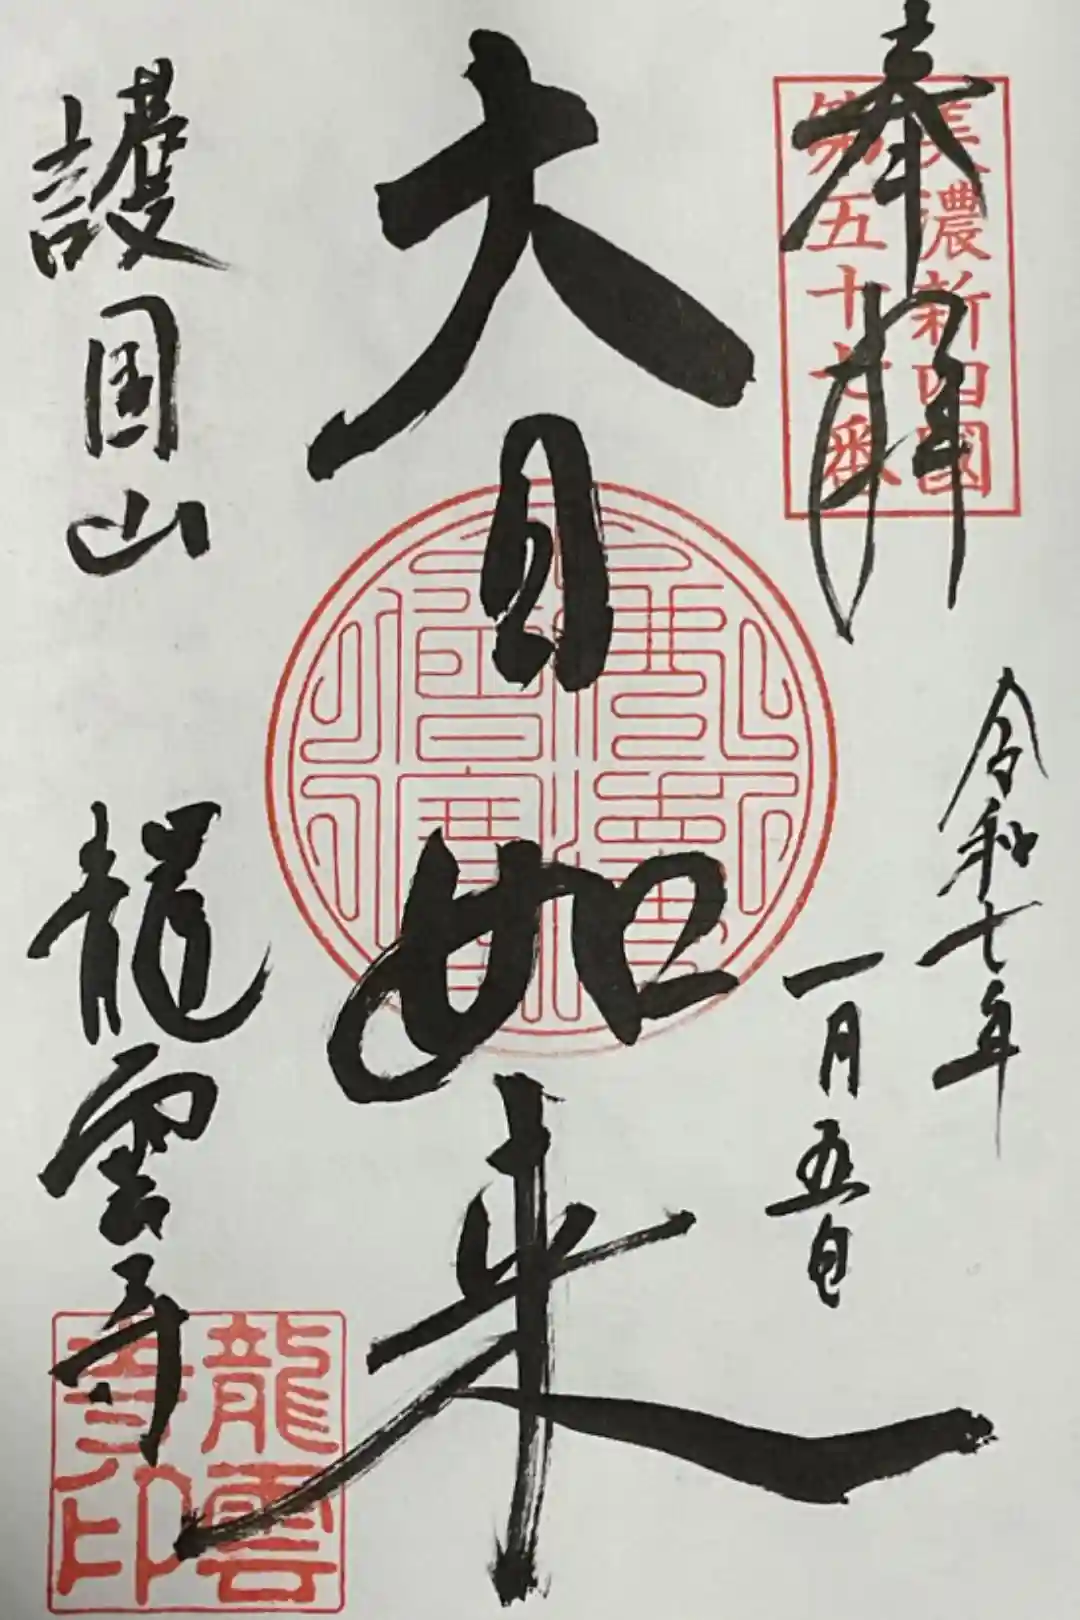 奉拝
美濃新四國
第五十七番
令和七年
一月五日
大日如来
護国山 龍雲寺
龍雲
寺印